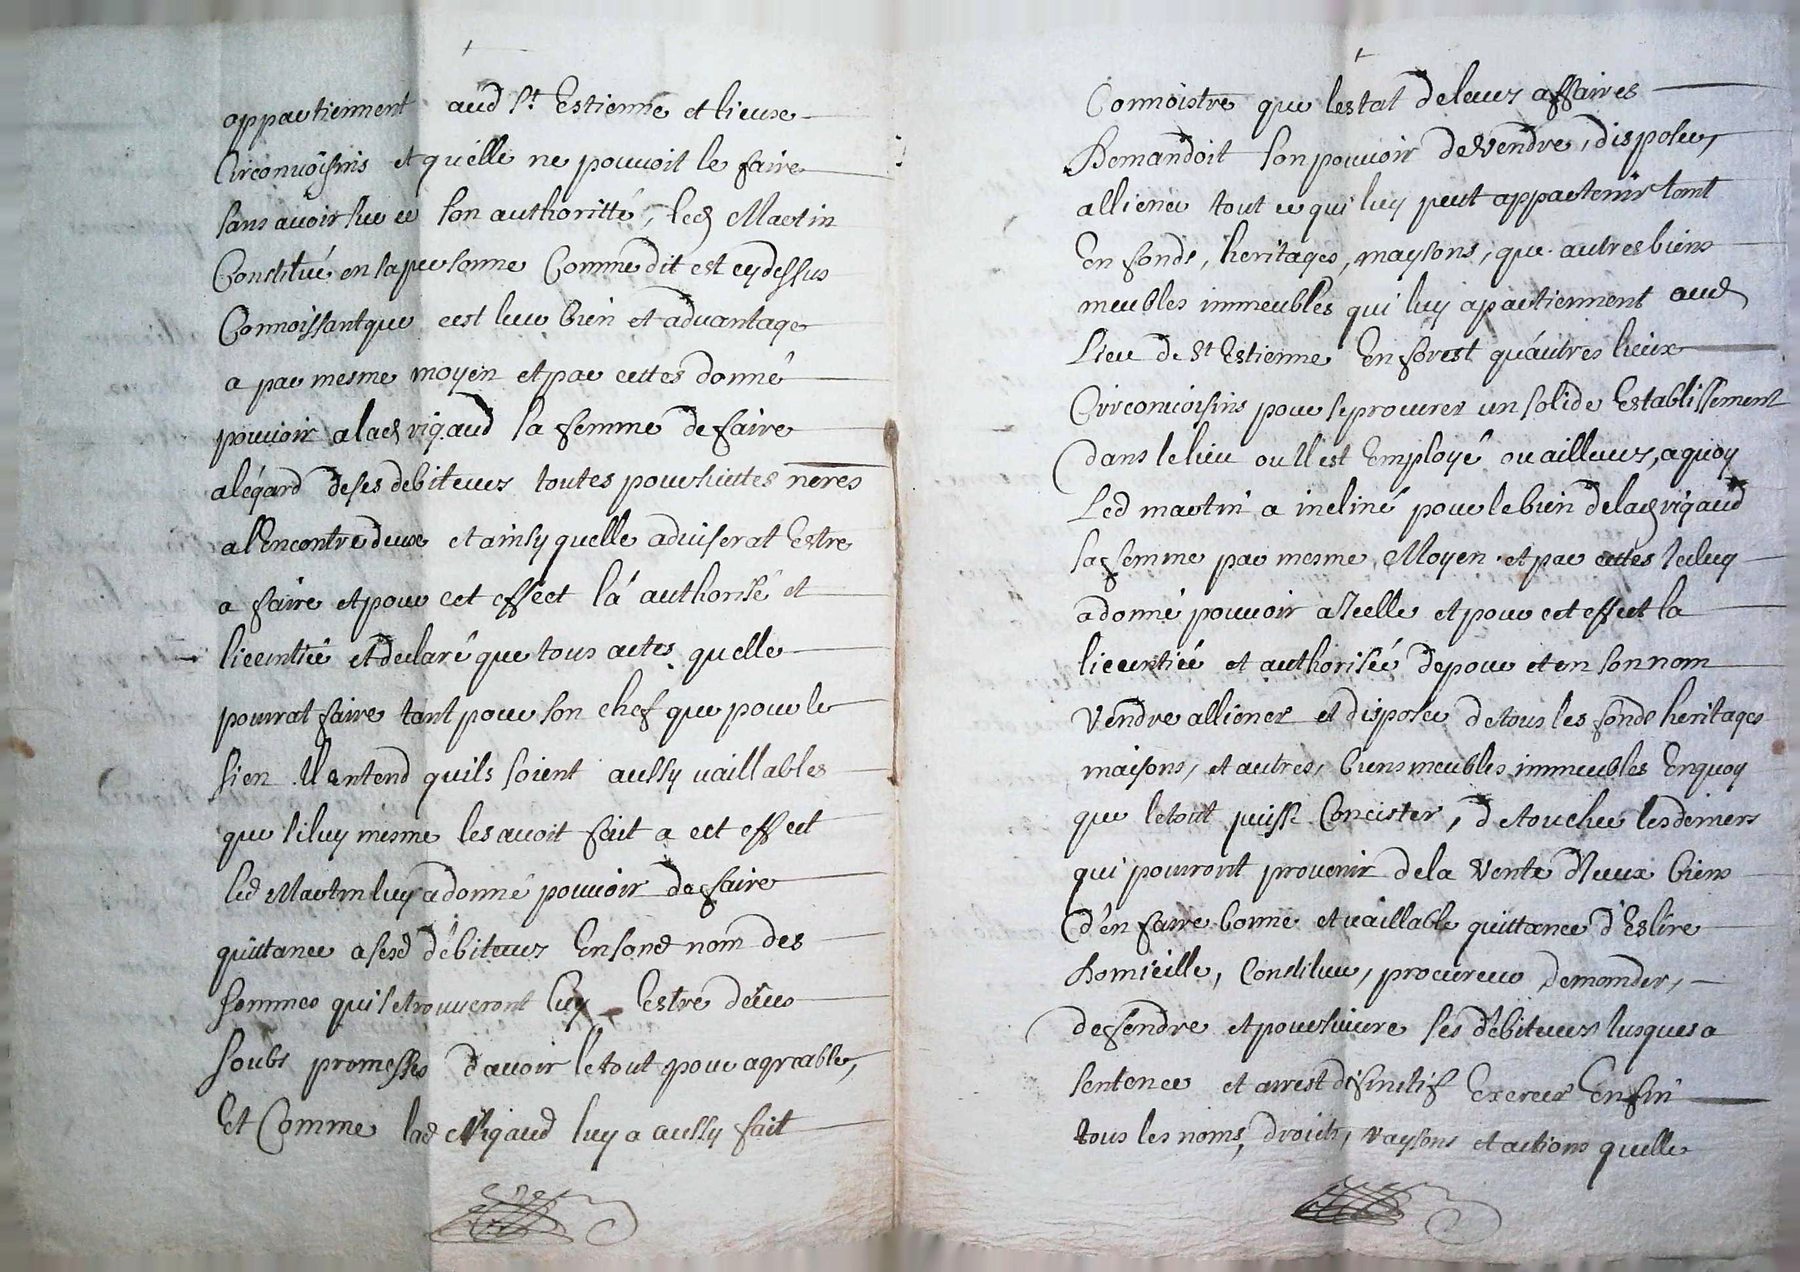 appartiennent aud St Estienne et lieux
Circonvoisins et quelle ne pouvoit le faire
sans avoir sur ce son authoritté, led Martin
Constitué en sa personne Comme dit est cydessus
Connoissant que cest leur bien et advantage
a par mesme moyen et par cettes donné
pouvoir a lad rigaud sa femme de faire
alégard de ses debiteurs toutes poursuittes neres
a l'Encontre deux et ainsy quelle adviserat Estre
a faire et pour cet effect la authorisé et
licentiée et declaré que tous actes quelle
pourrat faire tant pour son chef que pour le
sien Il entend quils soient aussy vaillables
que si luy mesme les avoit fait a cet effect
led Martin luy a donné pouvoir de faire
quittance a sesd débiteurs En sond nom des
sommes qui se trouveront luy Estre deues
soubs promesses davoir le tout pour agreable,
Et Comme lad Rigaud luy a aussy fait
Connoistre que lestat de leurs affaires
Demandoit son pouvoir de vendre, disposer,
alliener tout ce qui luy peut appartenir tant
En fonds, heritages, maysons, que autres biens
meubles immeubles qui luy apartiennent aud
Lieu de St Estienne En forest qu'autres lieux
Circonvoisins pour se procurer un solide Establissement
dans le lieu ou Il est Employé ou ailleurs, a quoy
Led martin a incliné pour le bien de lad rigaud
sa femme par mesme Moyen et par cettes Iceluy
a donné pouvoir a Icelle et pour cet effect la
licentiée et authorisée de pour et en son nom
Vendre alliener et disposer de tous les fonds heritages
maisons, et autres, biens meubles immeubles En quoy
que le tout puisse Concister, de toucher les deniers
qui pourront provenir de la Vente d'Iceux biens
d'en faire bonne et vaillable quittance d'Eslire
Domicille, Constituer, procureur demander,
deffendre et poursuivre ses débiteurs Jusques a
sentence et arrest definitif Exercer Enfin
tous les noms, droicts, raysons et actions quelle